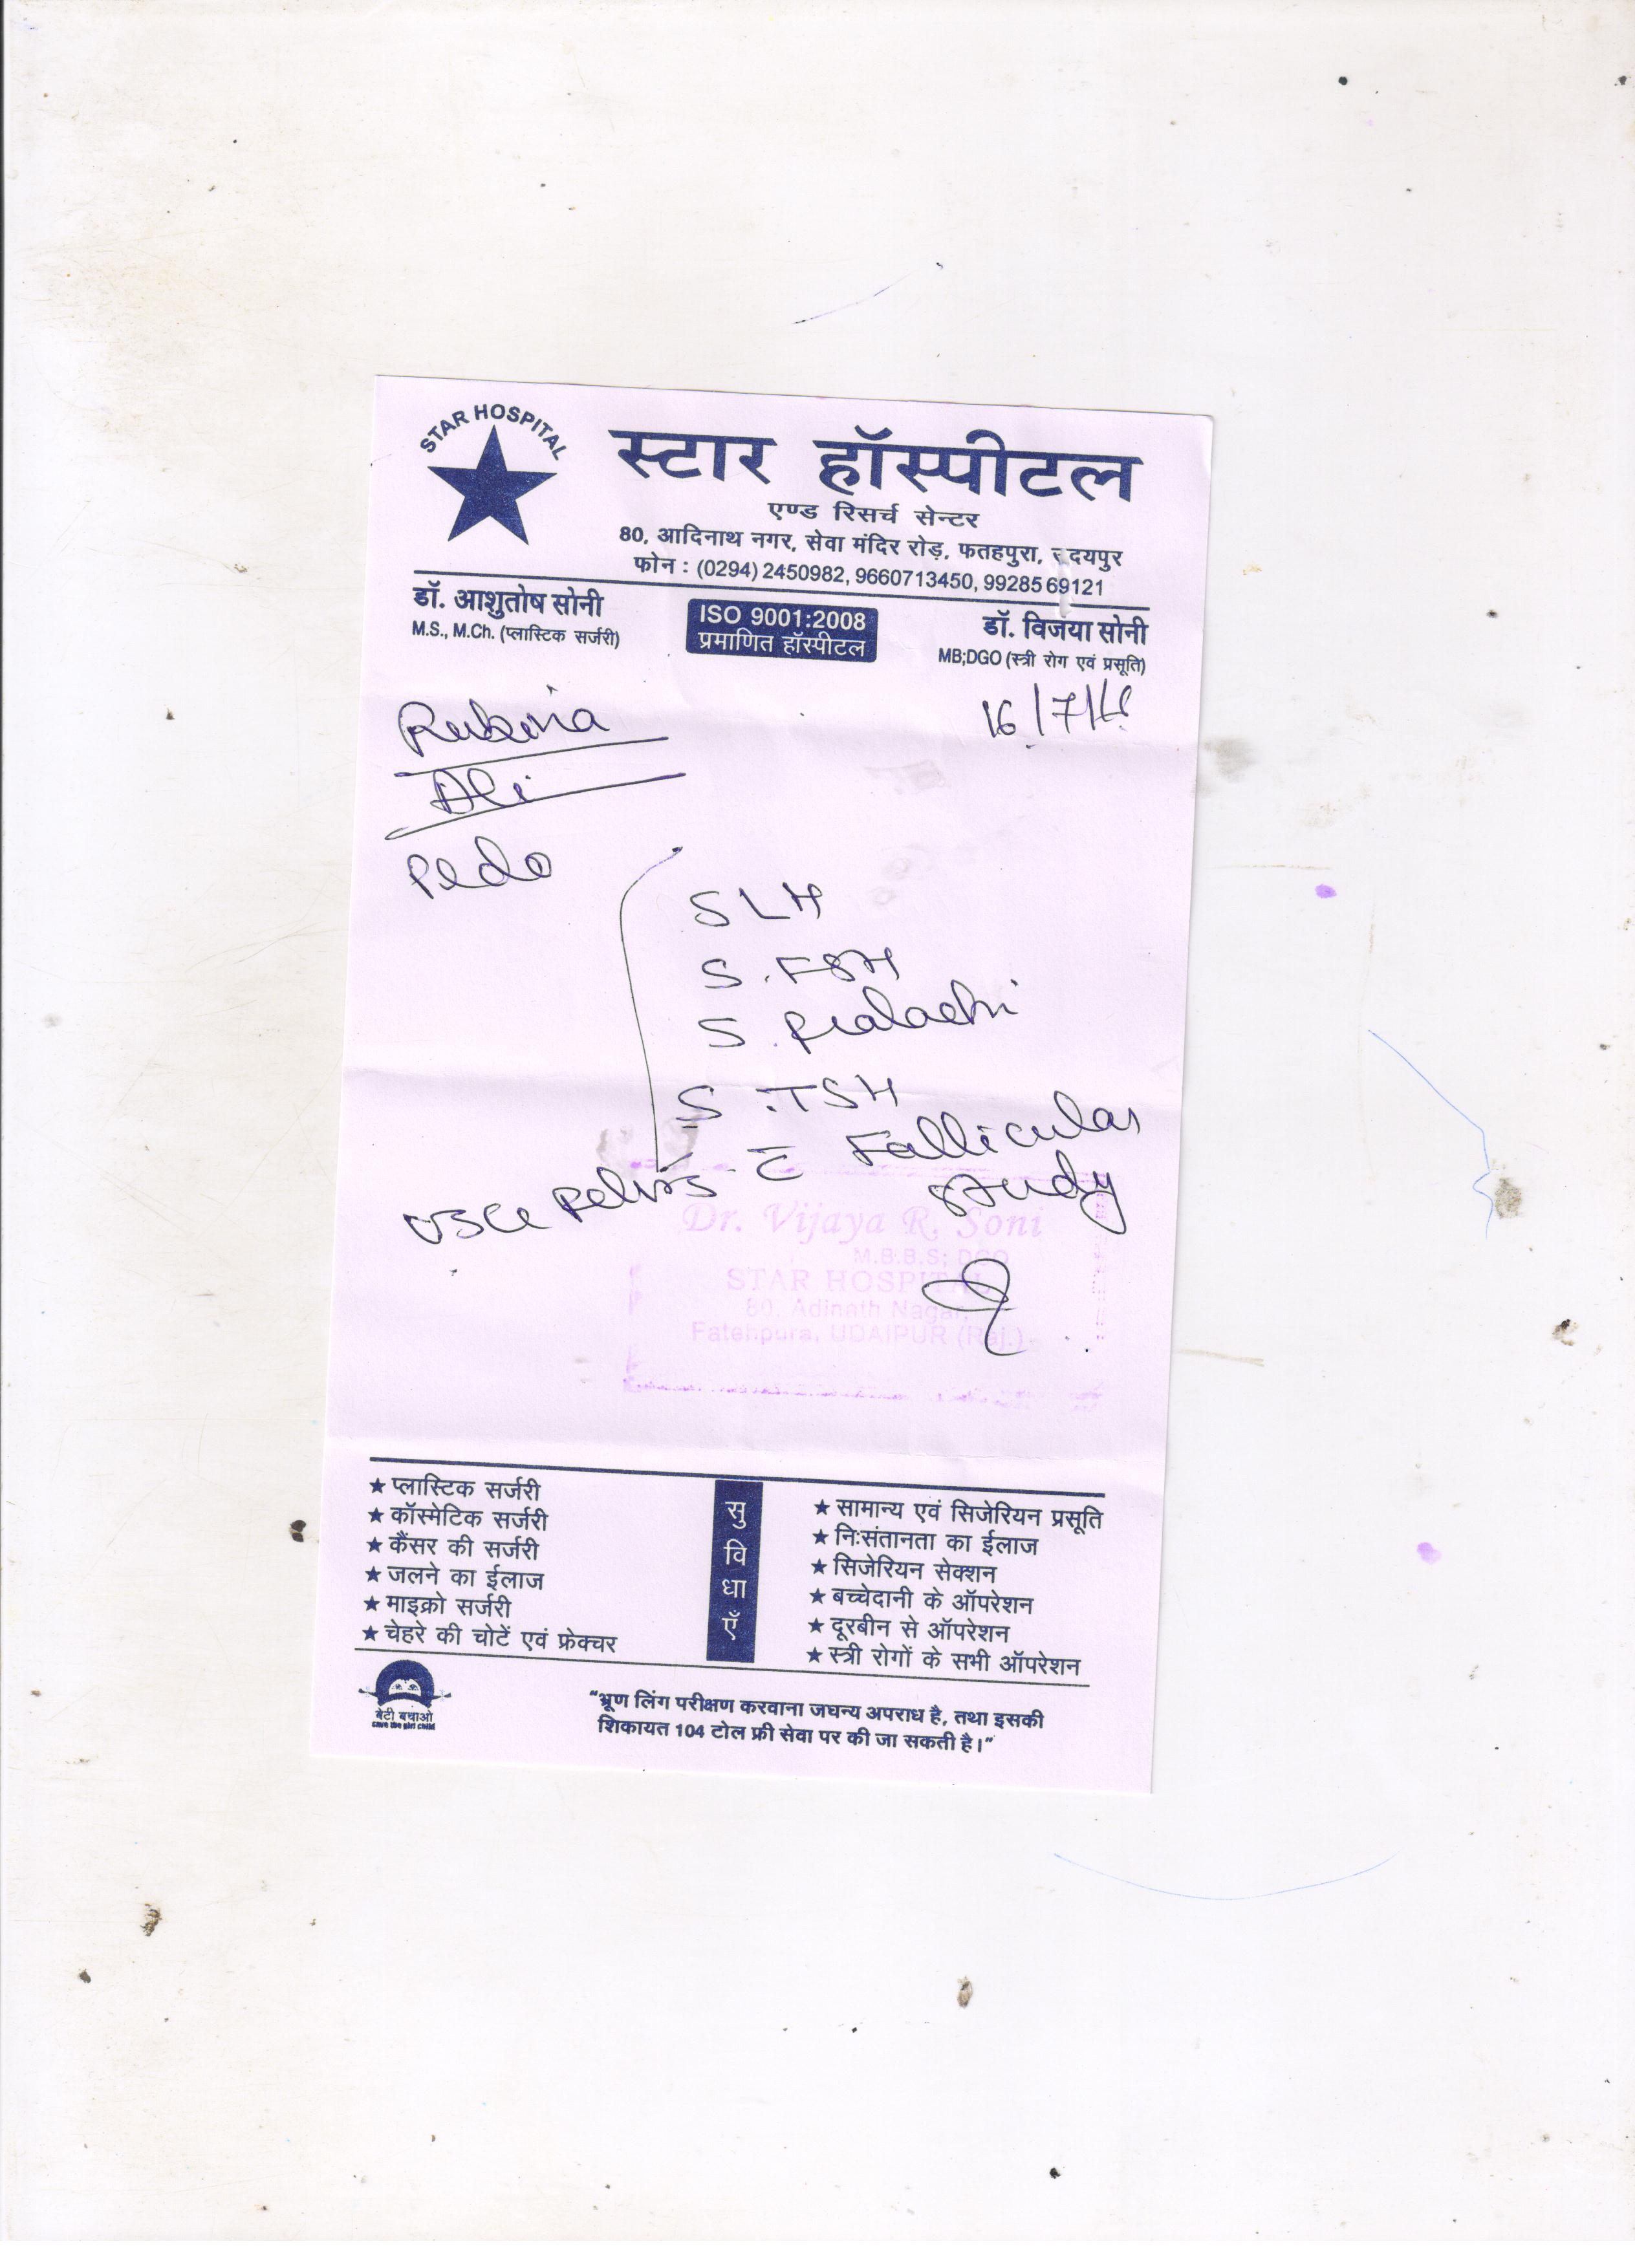 STAR HOSPITAL
स्टार हॉस्पीटल
एण्ड रिसर्च सेन्टर
80, आदिनाथ नगर, सेवा मंदिर रोड़, फतहपुरा, उदयपुर
फोन : (0294) 2450982, 9660713450, 9928569121
डॉ. आशुतोष सोनी
M.S., M.Ch. (प्लास्टिक सर्जरी)
ISO 9001:2008
प्रमाणित हॉस्पीटल
डॉ. विजया सोनी
MB;DGO (स्त्री रोग एवं प्रसूति)
16/7/
Rubina
Ali
S LH
S. FSH
S. Prolactin
S. TSH
Pelvis c̄ Follicular
study
Dr. Vijaya R. Soni
M.B.B.S; DGO
STAR HOSPITAL
80, Adinath Nagar,
Fatehpura, UDAIPUR (Raj.)
★ प्लास्टिक सर्जरी
★ कॉस्मेटिक सर्जरी
★ कैंसर की सर्जरी
★ जलने का ईलाज
★ माइक्रो सर्जरी
★ चेहरे की चोटें एवं फ्रेक्चर
सुविधाएँ
★ सामान्य एवं सिजेरियन प्रसूति
★ निःसंतानता का ईलाज
★ सिजेरियन सेक्शन
★ बच्चेदानी के ऑपरेशन
★ दूरबीन से ऑपरेशन
★ स्त्री रोगों के सभी ऑपरेशन
बेटी बचाओ
save the girl child
“भ्रूण लिंग परीक्षण करवाना जघन्य अपराध है, तथा इसकी
शिकायत 104 टोल फ्री सेवा पर की जा सकती है।”